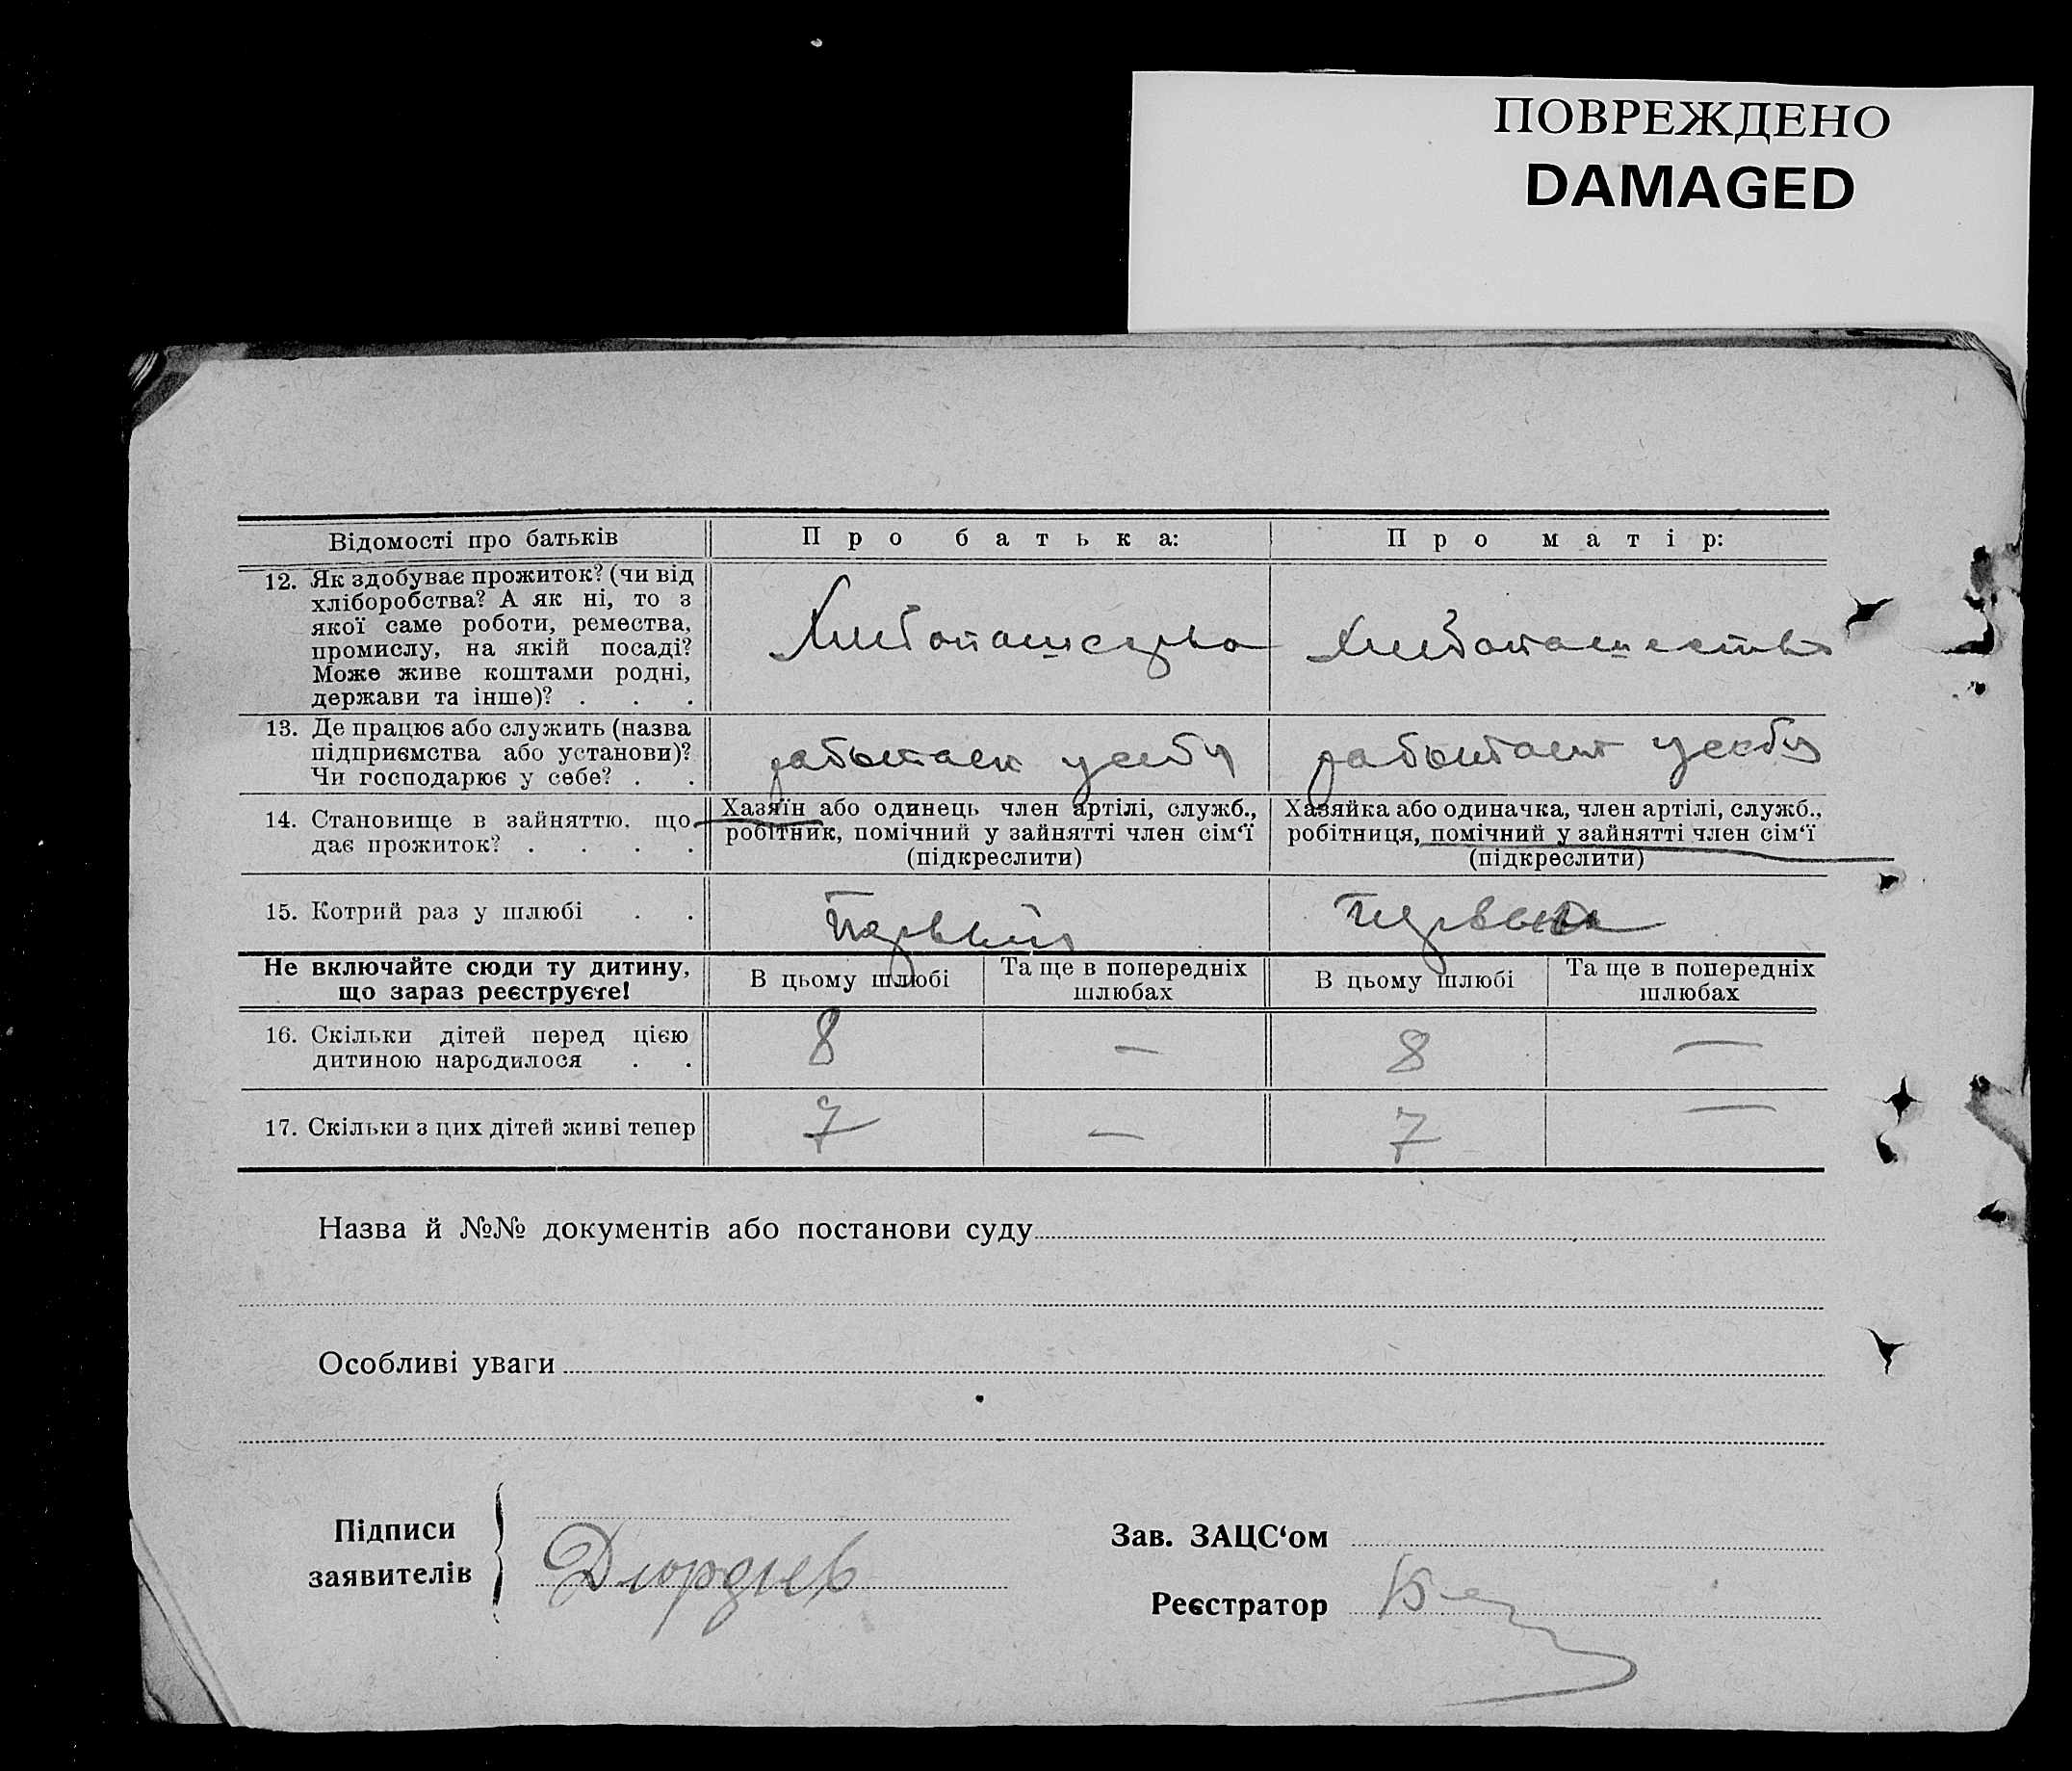 ПОВРЕЖДЕНО
DAMAGED
Відомості про батьків
Про батька:
Про матір:
12. Як здобуває прожиток? (чи від
хліборобства? А як ні, то з
якої саме роботи, ремества,
промислу, на якій посаді?
Може живе коштами родні,
держави та інше)? . . .
Хлебопашество
Хлебопашество
13. Де працює або служить (назва
підприємства або установи)?
Чи господарює у себе? . .
работает у себя
работает у себя
14. Становище в зайняттю, що
дає прожиток? . . . .
Хазяїн або одинець член артілі, служб.,
робітник, помічний у зайнятті член сім‘ї
(підкреслити)
Хазяйка або одиначка, член артілі, служб.,
робітниця, помічний у зайнятті член сім‘ї
(підкреслити)
15. Котрий раз у шлюбі . .
Первый
Первый
Не включайте сюди ту дитину,
що зараз реєструєте!
В цьому шлюбі
Та ще в попередніх
шлюбах
В цьому шлюбі
Та ще в попередніх
шлюбах
16. Скільки дітей перед цією
дитиною народилося . .
8
—
8
—
17. Скільки з цих дітей живі тепер
7
—
7
—
Назва й №№ документів або постанови суду
Особливі уваги
Підписи
заявителів
Дюрдіев
Зав. ЗАЦС‘ом
Реєстратор